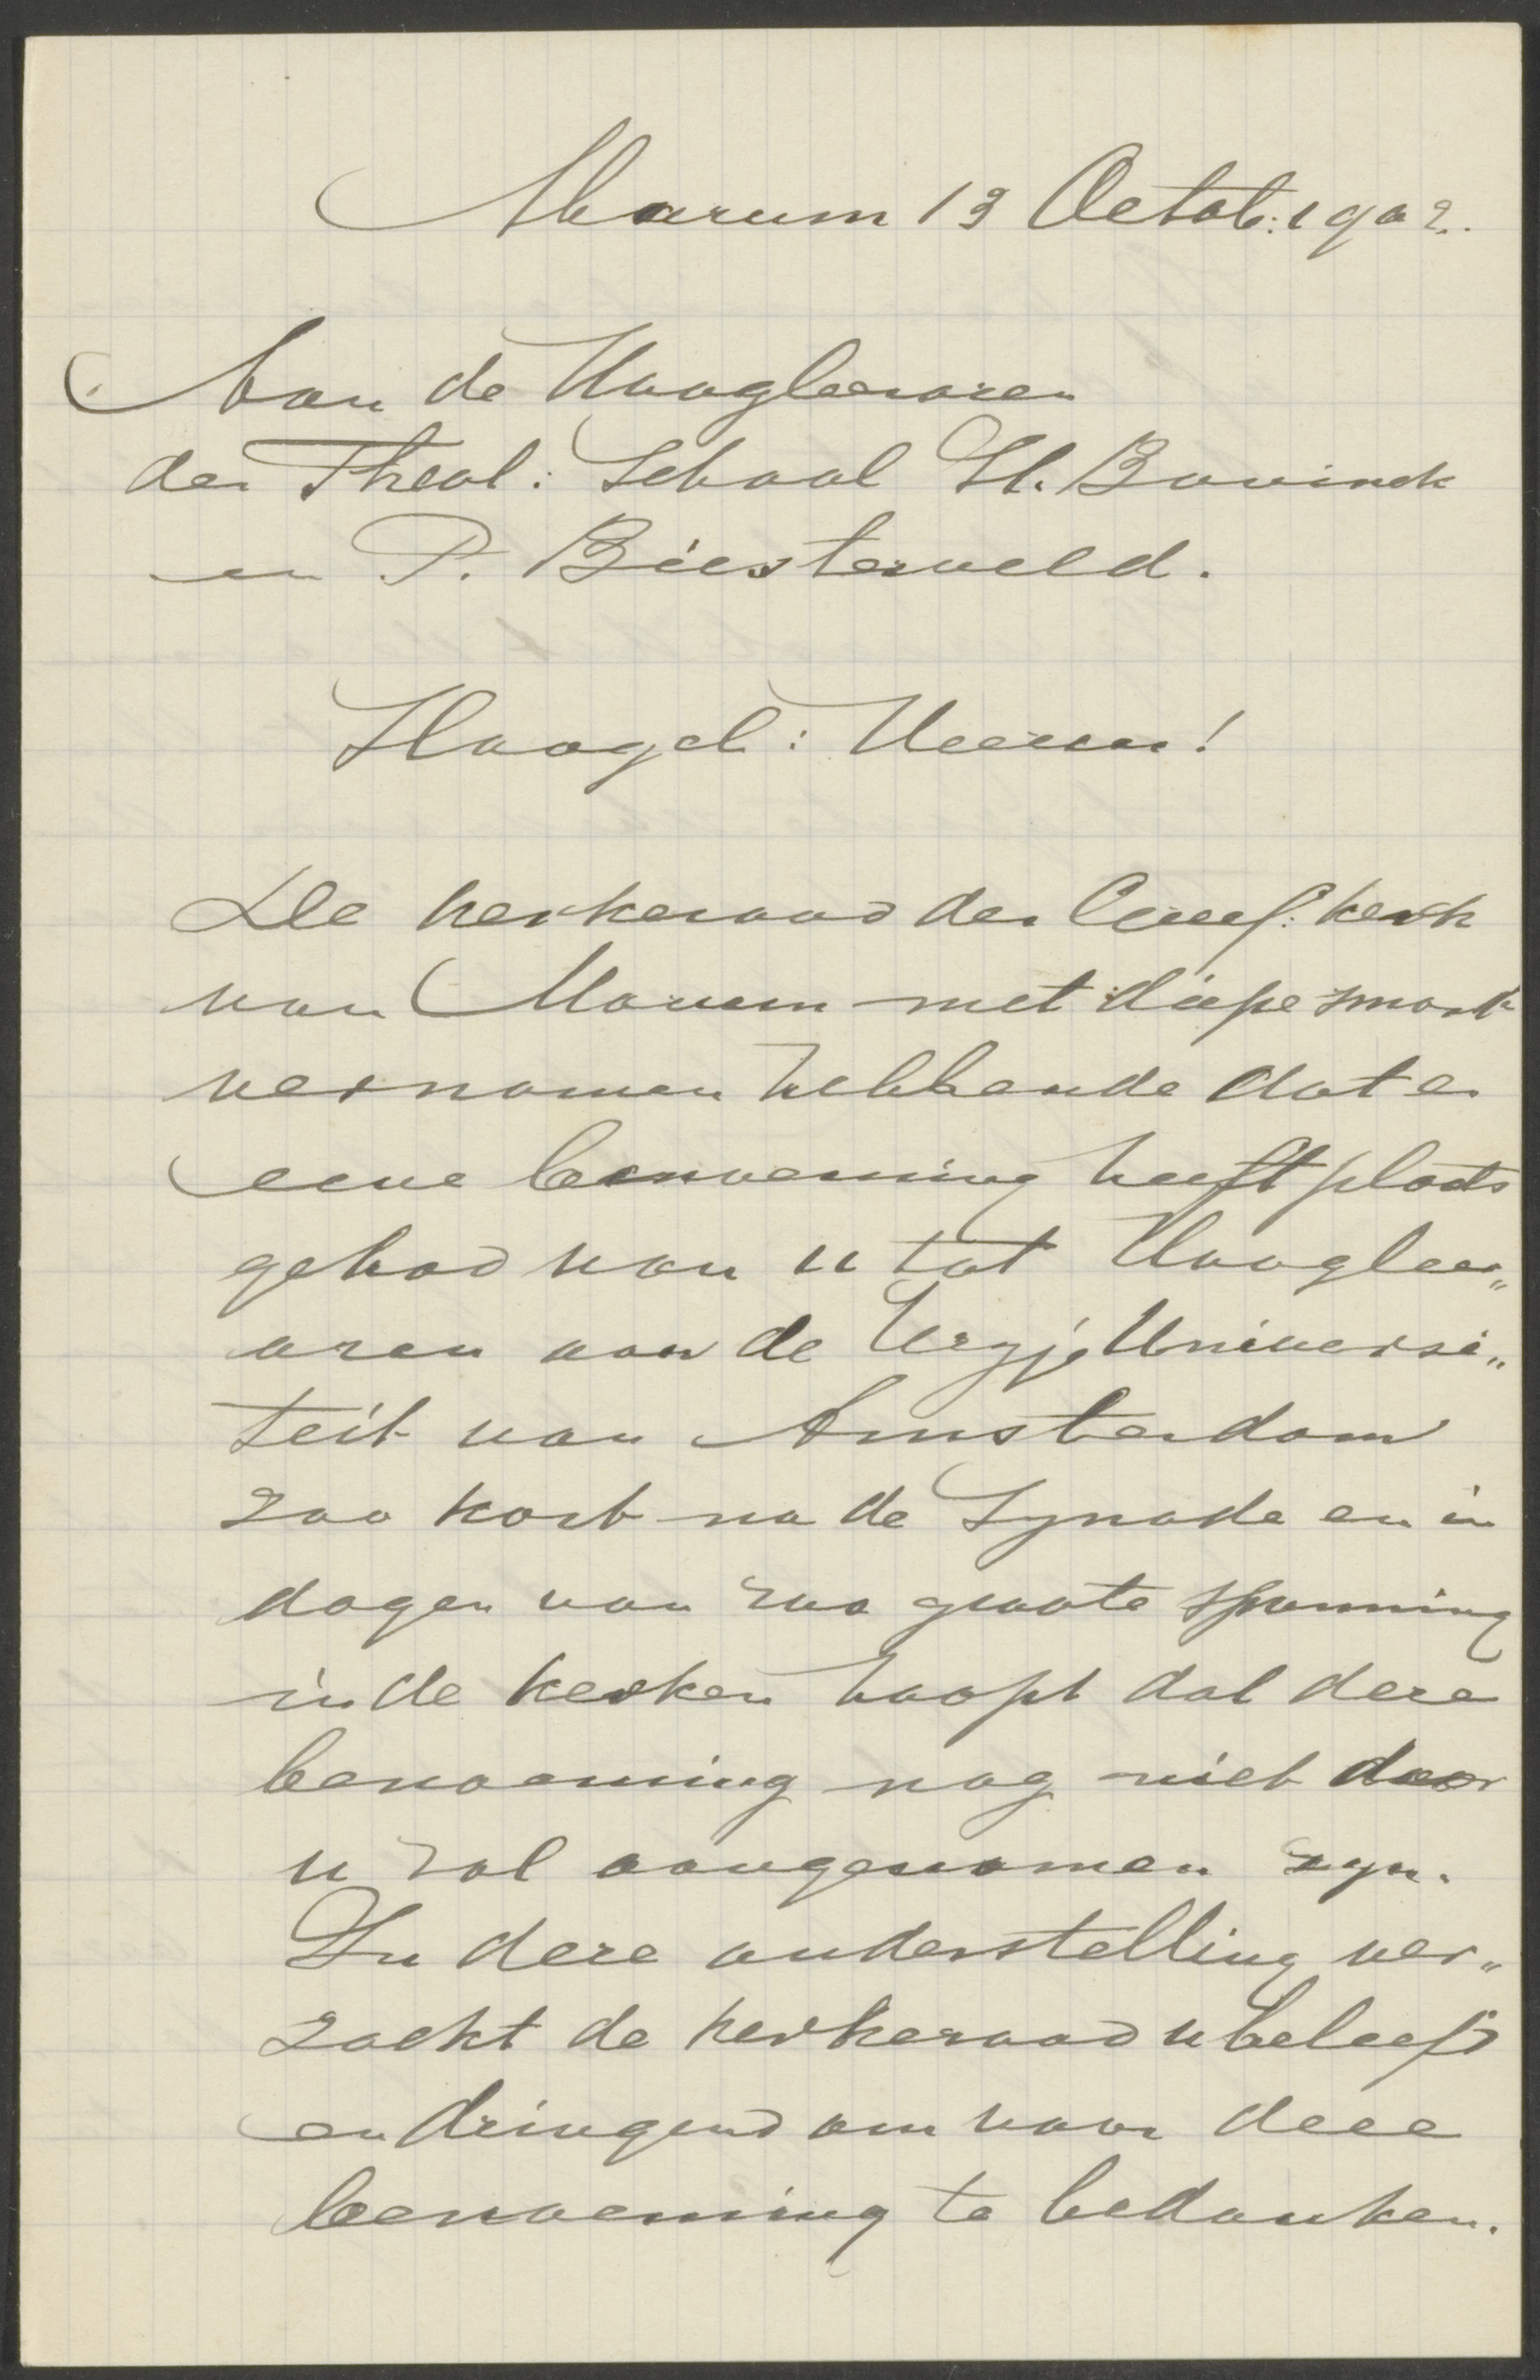 Marum 13 Octob: 1902.
Aan de Hoogleeraren
der Theol: School H. Bavinck
en P. Biesterveld.
Hoogel: Heeren!
De kerkeraad der Geref: kerk
van Marum met diepe smart
vernomen hebbende dat er
eene benoeming heeft plaats
gehad van u tot Hooglee„
aren aan de Vrije Universi„
teit van Amsterdam
zoo kort na de Synode en in
dagen van zoo groote spanning
in de kerken hoopt dat deze
benoeming nog niet door
u zal aangenomen zyn.
In deze onderstelling ver„
zoekt de kerkeraad u beleefd
en dringend om voor deze
benoeming te bedanken.